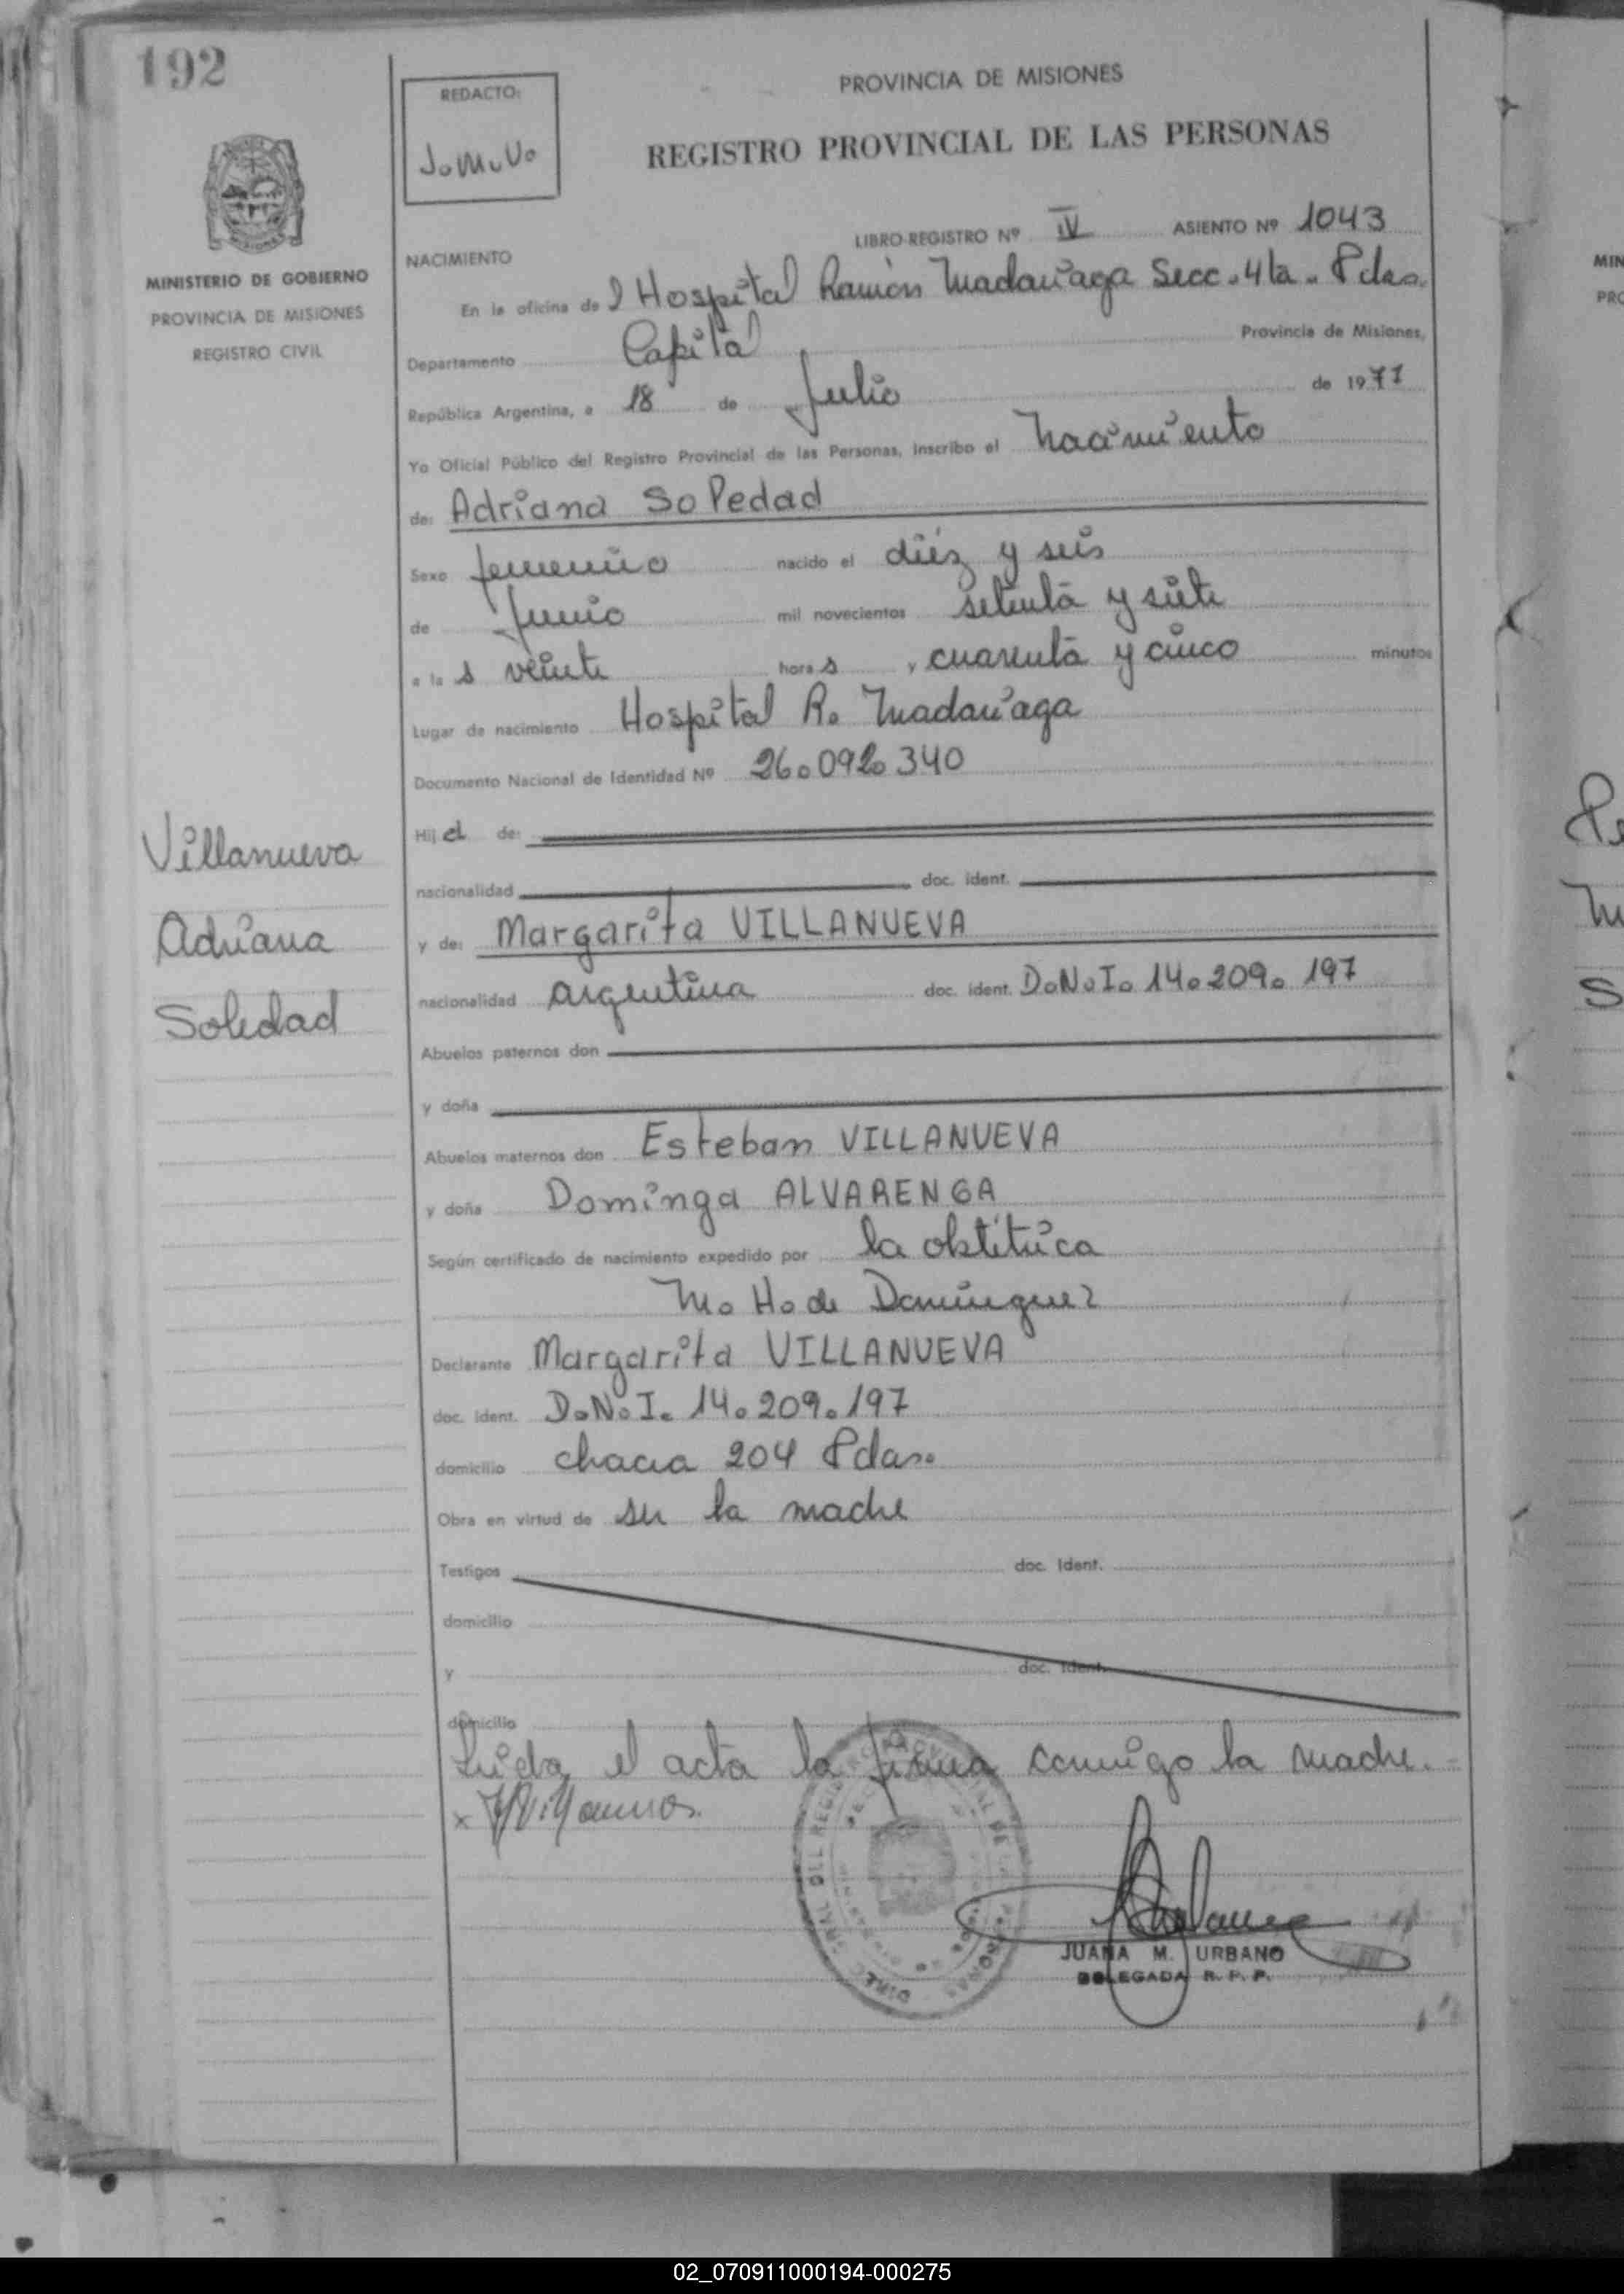 192
REDACTO:
J.M.U.
PROVINCIA DE MISIONES
REGISTRO PROVINCIAL DE LAS PERSONAS
LIBRO-REGISTRO Nº IV ASIENTO Nº 1043
MINISTERIO DE GOBIERNO
PROVINCIA DE MISIONES
REGISTRO CIVIL
NACIMIENTO
En la oficina de l Hospital Ramón Madariaga Secc. 4ta. Pdas.
Departamento Capital Provincia de Misiones,
República Argentina, a 18 de Julio de 1977
Yo Oficial Público del Registro Provincial de las Personas, inscribo el Nacimiento
de: Adriana Soledad
Sexo femenino nacido el diéz y seis
de Junio mil novecientos setenta y siete
a la s veinte hora s y cuarenta y cinco minutos
Lugar de nacimiento Hospital R. Madariaga
Documento Nacional de Identidad Nº 26.092.340
Hij a de:
nacionalidad doc. ident.
y de: Margarita VILLANUEVA
nacionalidad argentina doc. ident. D.N.I. 14.209.197
Villanueva
Adriana
Soledad
Abuelos paternos don
y doña
Abuelos maternos don Esteban VILLANUEVA
y doña Dominga ALVARENGA
Según certificado de nacimiento expedido por la obstétrica
M. H. de Dominguez
Declarante Margarita VILLANUEVA
doc. ident. D.N.I. 14.209.197
domicilio chacra 204 Pdas.
Obra en virtud de ser la madre
Testigos doc. ident.
domicilio
y doc. ident.
domicilio
Leída el acta la firma conmigo la madre.
JUANA M. URBANO
DELEGADA R. P. P.
02_070911000194-000275